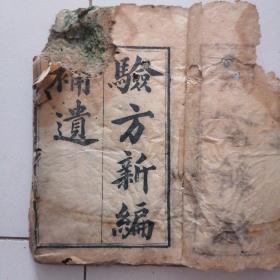 驗方新編
補遺